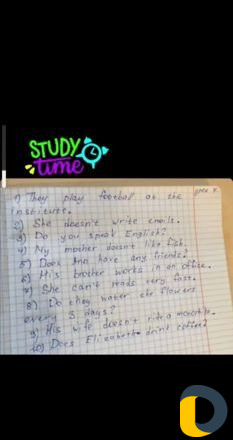 STUDY
time
упр. 4
1) They play football at the
institute.
2) She doesn't write emails.
3) Do you speak English?
4) My mother doesn't like fish.
5) Does Ann have any friends?
6) His brother works in an office.
7) She can't reads very fast.
8) Do they water the flowers
every 3 days?
9) His wife doesn't ride a motorbike.
10) Does Elizabeth drink coffee?